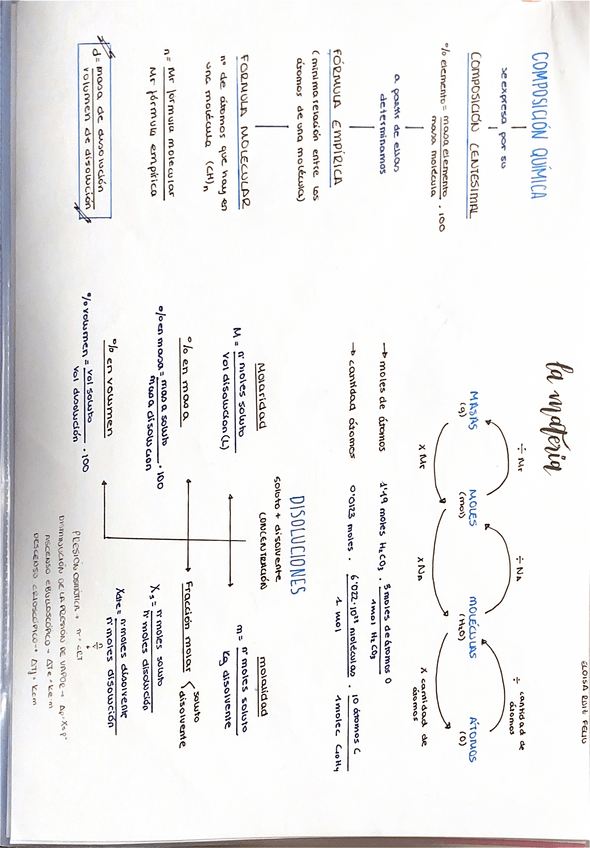 ELOISA RUIZ FELIU
la materia
COMPOSICIÓN QUÍMICA
se expresa por su
COMPOSICIÓN CENTESIMAL
% elemento = masa elemento / masa molécula · 100
a partir de ellas
determinamos
FÓRMULA EMPÍRICA
(mínima relación entre los
átomos de una molécula)
FORMULA MOLECULAR
nº de átomos que hay en
una molécula (CH)n
n = Mr fórmula molecular / Mr fórmula empírica
d = masa de disolución / volumen de disolución
÷ Mr
÷ NA
÷ cantidad de
átomos
MASAS
(g)
MOLES
(mol)
MOLÉCULAS
(H2O)
ÁTOMOS
(O)
x Mr
x NA
x cantidad de
átomos
→ moles de átomos 1'19 moles H2CO3 · 3 moles de átomos O / 1 mol H2CO3
→ cantidad átomos 0'0123 moles · 6'022·10²³ moléculas / 1 mol · 10 átomos C / 1 molec
DISOLUCIONES
soluto + disolvente
CONCENTRACIÓN
Molaridad
M = nº moles soluto / Vol disolución (L)
molalidad
m = nº moles soluto / Kg disolvente
% en masa
% en masa = masa soluto / masa disolución · 100
Fracción molar { soluto
disolvente
Xs = nº moles soluto / nº moles disolución
Xdte = nº moles disolvente / nº moles disolución
% en volumen
% volumen = vol soluto / vol disolución · 100
PRESIÓN OSMÓTICA →
DISMINUCIÓN DE LA PRESIÓN DE VAPOR →
ASCENSO EBULLOSCÓPICO → ΔTe = Ke·m
DESCENSO CRIOSCÓPICO → ΔTf = Kc·m